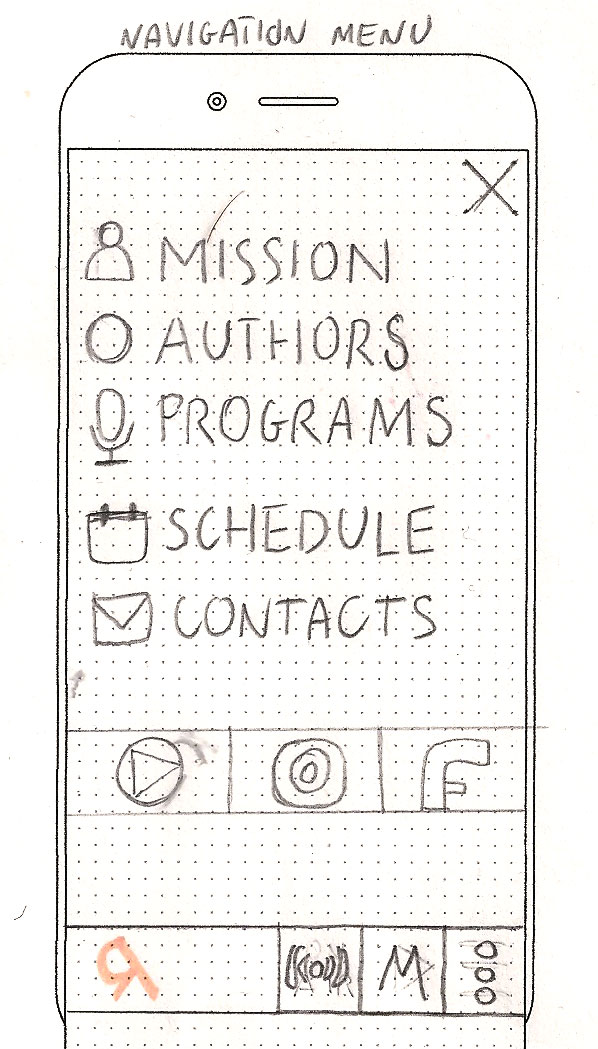 NAVIGATION MENU
MISSION
AUTHORS
PROGRAMS
SCHEDULE
CONTACTS
Я M